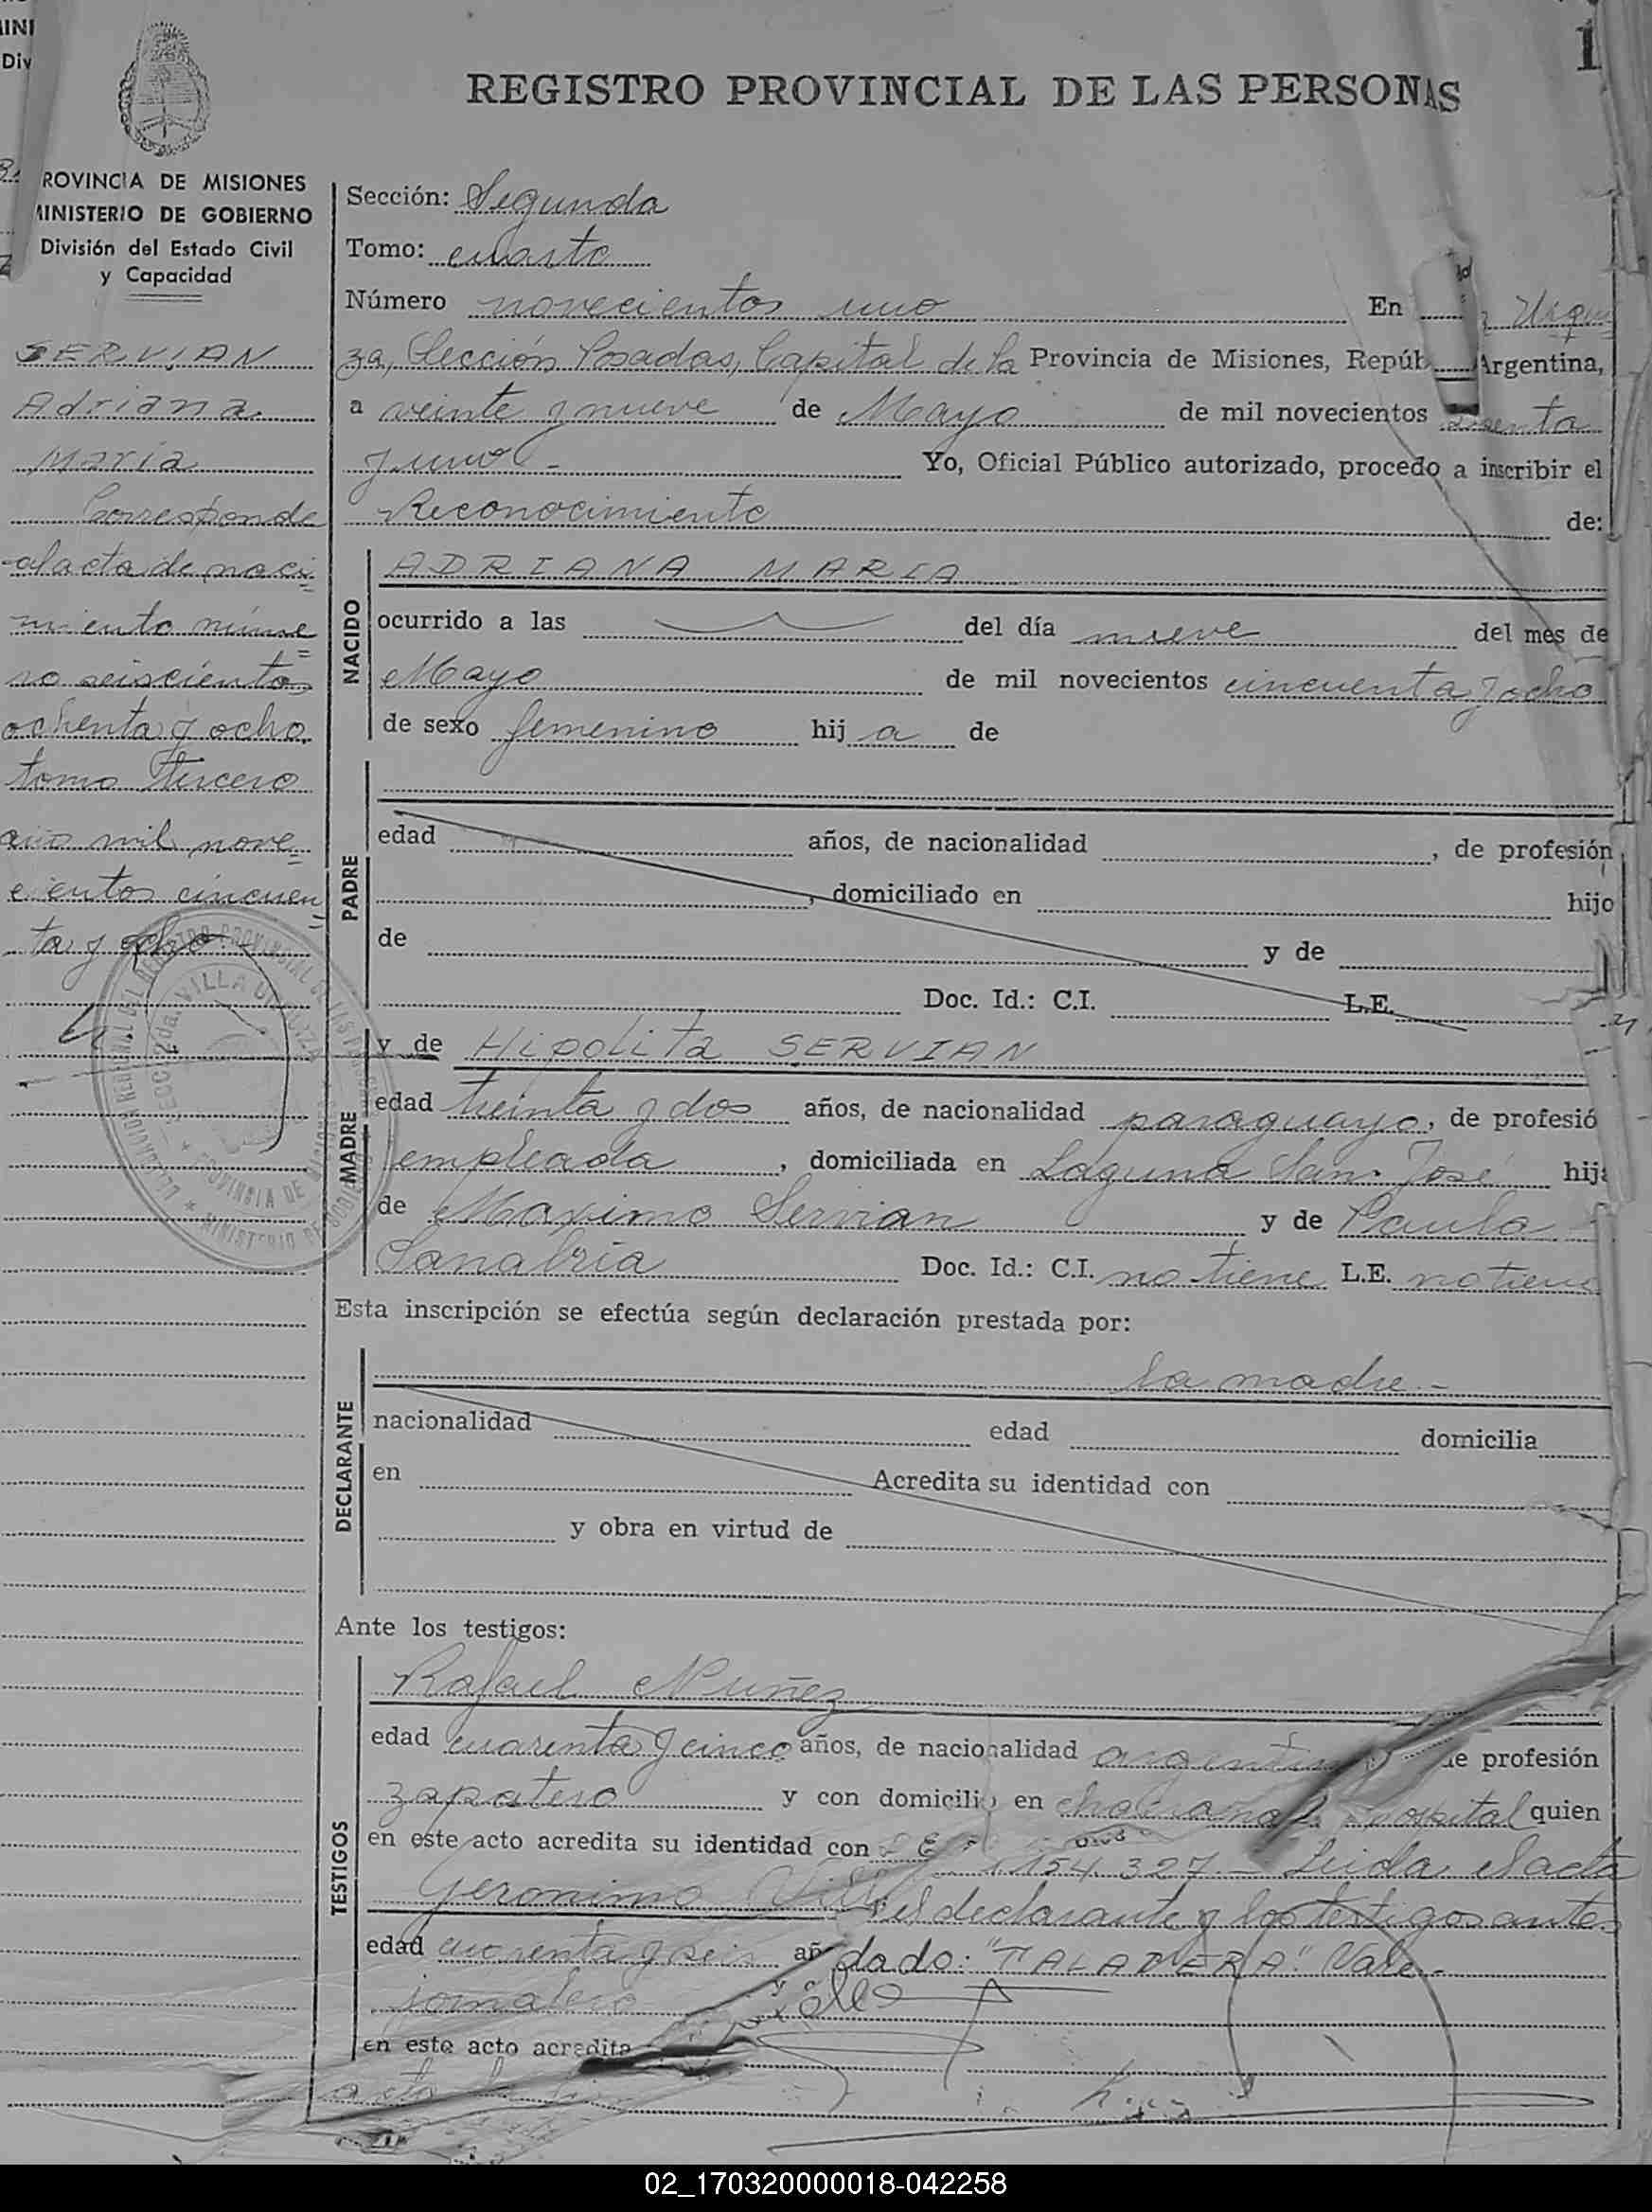 INI
Div
1
REGISTRO PROVINCIAL DE LAS PERSONAS
ROVINCIA DE MISIONES
MINISTERIO DE GOBIERNO
División del Estado Civil
y Capacidad
SERVIAN
Adriana
María
Corresponde
al acta de naci=
miento núme=
ro seiscientos
ochenta y ocho,
tomo tercero
año mil nove=
cientos cincuen
ta y ocho
Sección: Segunda
Tomo: cuarto
Número novecientos uno En Urqui
za, Sección Posadas, Capital de la Provincia de Misiones, Repúb Argentina,
a veinte y nueve de Mayo de mil novecientos senta
y uno.- Yo, Oficial Público autorizado, procedo a inscribir el
Reconocimiento de:
NACIDO
ADRIANA MARIA
ocurrido a las del día nueve del mes de
Mayo de mil novecientos cincuenta y ocho
de sexo femenino hij a de
PADRE
edad años, de nacionalidad , de profesión
, domiciliado en hijo
de y de
Doc. Id.: C.I. L.E.
MADRE
y de Hipolita SERVIAN
edad treinta y dos años, de nacionalidad paraguayo, de profesió
empleada , domiciliada en Laguna San José hija
de Maximo Servian y de Paula
Sanabria Doc. Id.: C.I. no tiene L.E. no tiene
Esta inscripción se efectúa según declaración prestada por:
DECLARANTE
la madre.-
nacionalidad edad domicilia
en Acredita su identidad con
y obra en virtud de
Ante los testigos:
TESTIGOS
Rafael Nuñez
edad cuarenta y cinco años, de nacionalidad argentino de profesión
zapatero y con domicilio en chacra hospital quien
en este acto acredita su identidad con L E
154.327 - Leida el acta
Geronimo
el declarante y los testigos antes
edad cuarenta y seis añ dado: "TALAVERA" Vale.-
jornalero
en este acto acredita
02_170320000018-042258